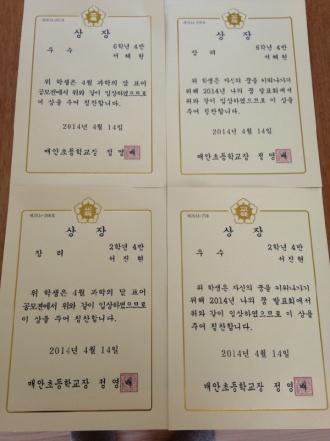 상 장
우 수
6학년 4반
서 해 원
위 학생은 4월 과학의 달 표어
공모전에서 위와 같이 입상하였으므로
이 상을 주어 칭찬합니다.
2014년 4월 14일
매안초등학교장 정 영
상 장
장 려
6학년 4반
서 해 원
위 학생은 자신의 꿈을 키워나가기
위해 2014년 나의 꿈 발표회에서
위와 같이 입상하였으므로 이 상을
주어 칭찬합니다.
2014년 4월 14일
매안초등학교장 정 영
상 장
장 려
2학년 4반
서 진 현
위 학생은 4월 과학의 달 표어
공모전에서 위와 같이 입상하였으므로
이 상을 주어 칭찬합니다.
2014년 4월 14일
매안초등학교장 정 영
상 장
우 수
2학년 4반
서 진 현
위 학생은 자신의 꿈을 키워나가기
위해 2014년 나의 꿈 발표회에서
위와 같이 입상하였으므로 이 상을
주어 칭찬합니다.
2014년 4월 14일
매안초등학교장 정 영